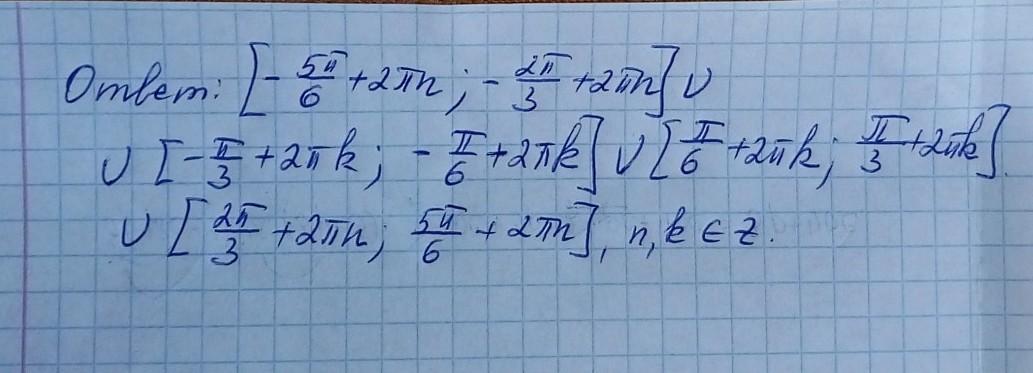 Ответ: [-5π/6 + 2πn; -2π/3 + 2πn] ∪
∪ [-π/3 + 2πk; -π/6 + 2πk] ∪ [π/6 + 2πk; π/3 + 2πk].
∪ [2π/3 + 2πn; 5π/6 + 2πn], n, k ∈ z.